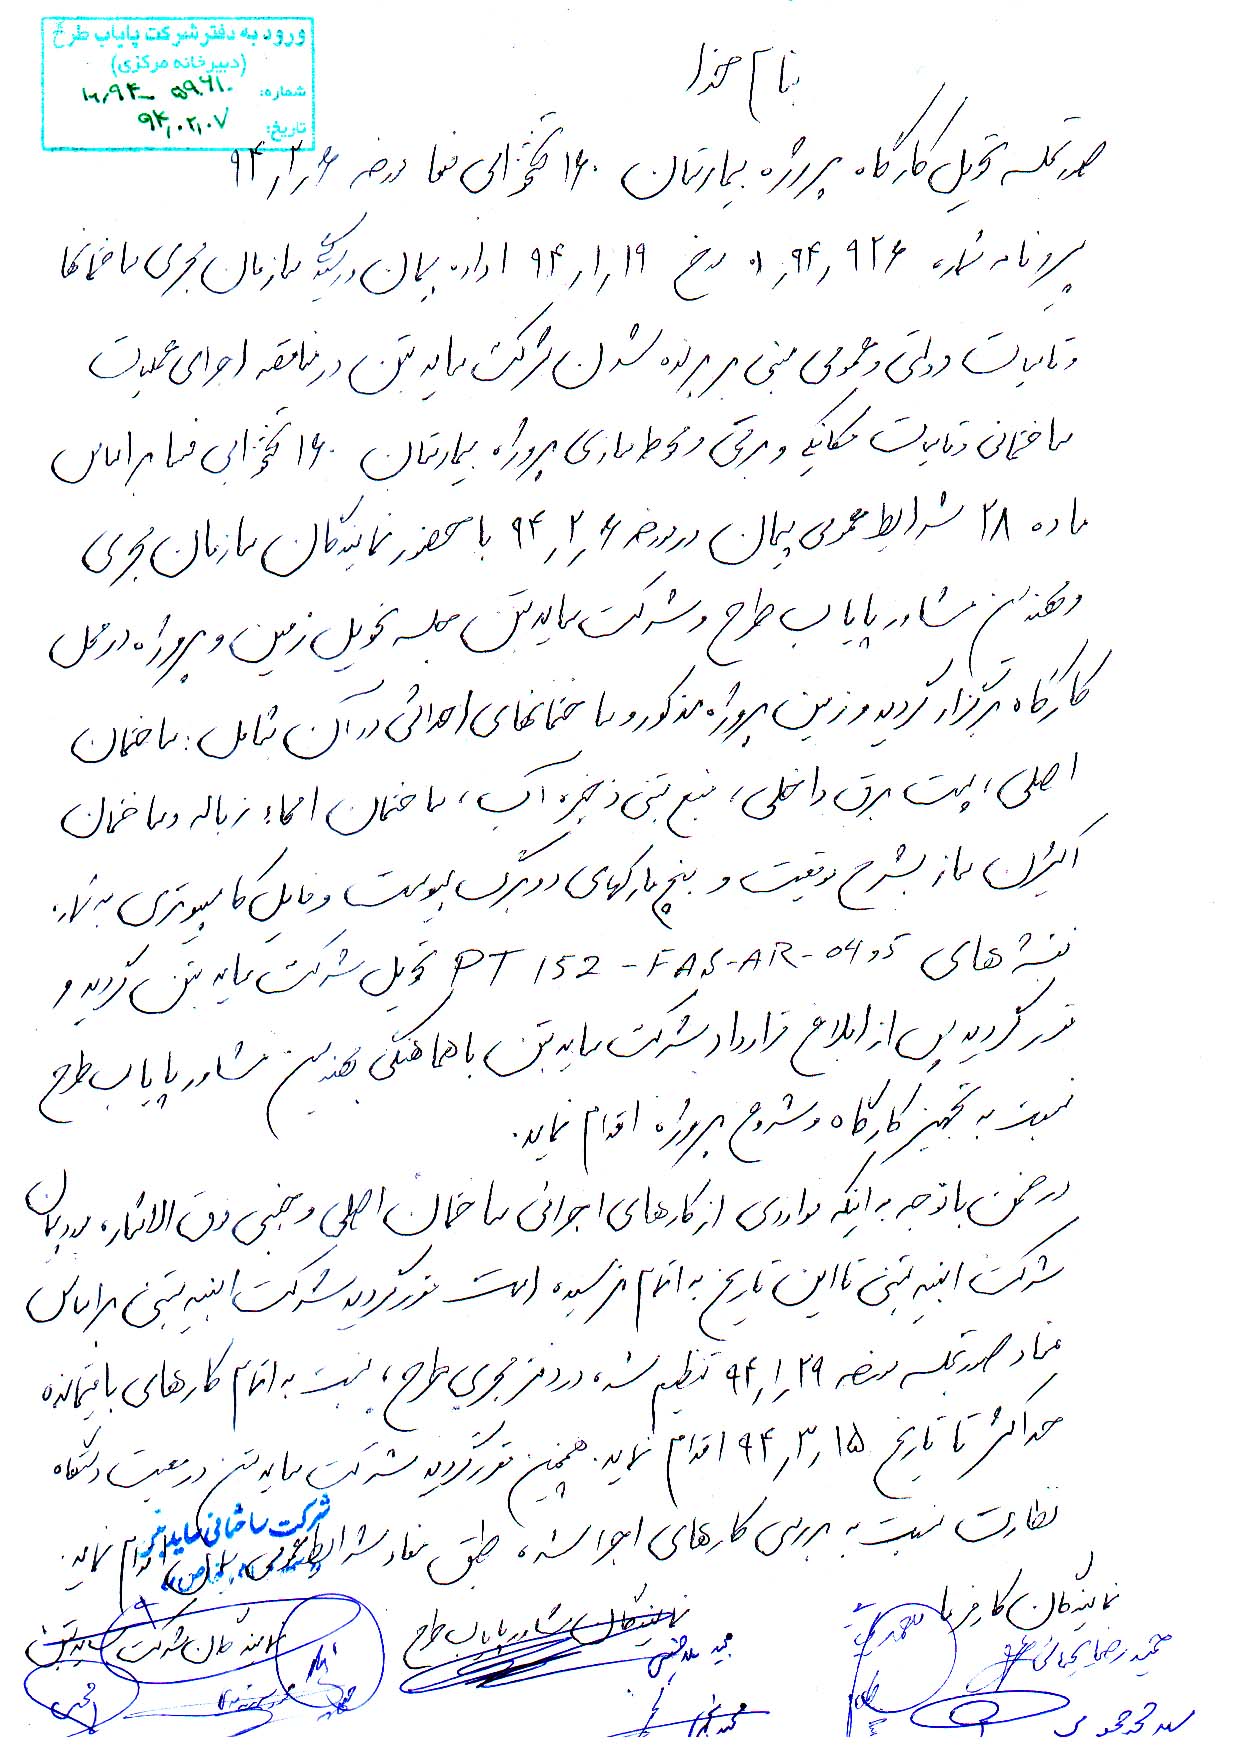 ورود به دفتر شرکت پایاب طرح
(دبیرخانه مرکزی)
شماره:
تاریخ: ۹۴,۰۲,۰۷
بنام خدا
صورتجلسه تحویل کارگاه پروژه بیمارستان ۱۶۰ تختخوابی فسا مورخه ۹۴,۲,۶
پیرو نامه شماره ۰۱,۹۴,۹۲۶ مورخ ۹۴,۱,۱۹ اداره پیمان و رسیدگی سازمان مجری ساختمانها
و تاسیسات دولتی و عمومی مبنی بر برنده شدن شرکت ساید بتن در مناقصه اجرای عملیات
ساختمانی و تاسیسات مکانیکی و برقی و محوطه سازی پروژه بیمارستان ۱۶۰ تختخوابی فسا بر اساس
ماده ۲۸ شرایط عمومی پیمان در مورخه ۹۴,۲,۶ با حضور نمایندگان سازمان مجری
و مهندسین مشاور پایاب طرح و شرکت ساید بتن جلسه تحویل زمین و پروژه در محل
کارگاه برگزار گردید و زمین پروژه مذکور و ساختمانهای احداثی در آن شامل: ساختمان
اصلی، پست برق داخلی، منبع بتنی ذخیره آب، ساختمان امحاء زباله و ساختمان
اکسیژن ساز بشرح موقعیت و بنچ مارکهای دو برگ پیوست و فایل کامپیوتری به شماره
نقشه های PT 152-FAS-AR-04 و 05 تحویل شرکت ساید بتن گردید و
مقرر گردید پس از ابلاغ قرارداد شرکت ساید بتن با هماهنگی مهندسین مشاور پایاب طرح
نسبت به تجهیز کارگاه و شروع پروژه اقدام نماید.
در ضمن با توجه به اینکه مواردی از کارهای اجرائی ساختمان اصلی و جنبی فوق الاشاره، مورد پیمان
شرکت ابنیه بتنی تا این تاریخ به اتمام نرسیده است مقرر گردید شرکت ابنیه بتنی بر اساس
مفاد صورتجلسه مورخه ۹۴,۱,۲۹ تنظیم شده در دفتر مجری طرح، نسبت به اتمام کارهای باقیمانده
حداکثر تا تاریخ ۹۴,۳,۱۵ اقدام نماید. همچنین مقرر گردید شرکت ساید بتن در معیت دستگاه
نظارت نسبت به بررسی کارهای اجرا شده طبق مفاد شرایط عمومی پیمان اقدام نماید.
شرکت ساختمانی ساید بتن
نمایندگان کارفرما
نمایندگان مشاور پایاب طرح
نمایندگان شرکت ساید بتن